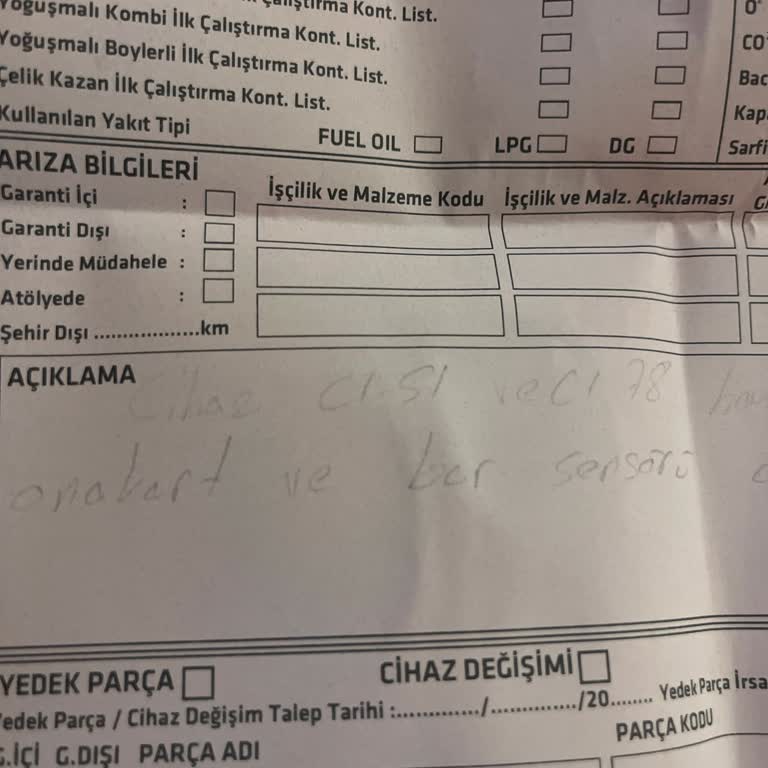 Çalıştırma Kont. List.
Yoğuşmalı Kombi İlk Çalıştırma Kont. List.
Yoğuşmalı Boylerli İlk Çalıştırma Kont. List.
Çelik Kazan İlk Çalıştırma Kont. List.
Kullanılan Yakıt Tipi FUEL OIL LPG DG
CO
Bac
Kap
Sarfi
ARIZA BİLGİLERİ
Garanti İçi :
Garanti Dışı :
Yerinde Müdahele :
Atölyede :
Şehir Dışı ..................km
İşçilik ve Malzeme Kodu İşçilik ve Malz. Açıklaması
AÇIKLAMA
Cihaz C1.51 ve C1 78
anakart ve bar sensörü
YEDEK PARÇA CİHAZ DEĞİŞİMİ
Yedek Parça / Cihaz Değişim Talep Tarihi :............../.............../20........ Yedek Parça İrsa
G.İÇİ G.DIŞI PARÇA ADI PARÇA KODU